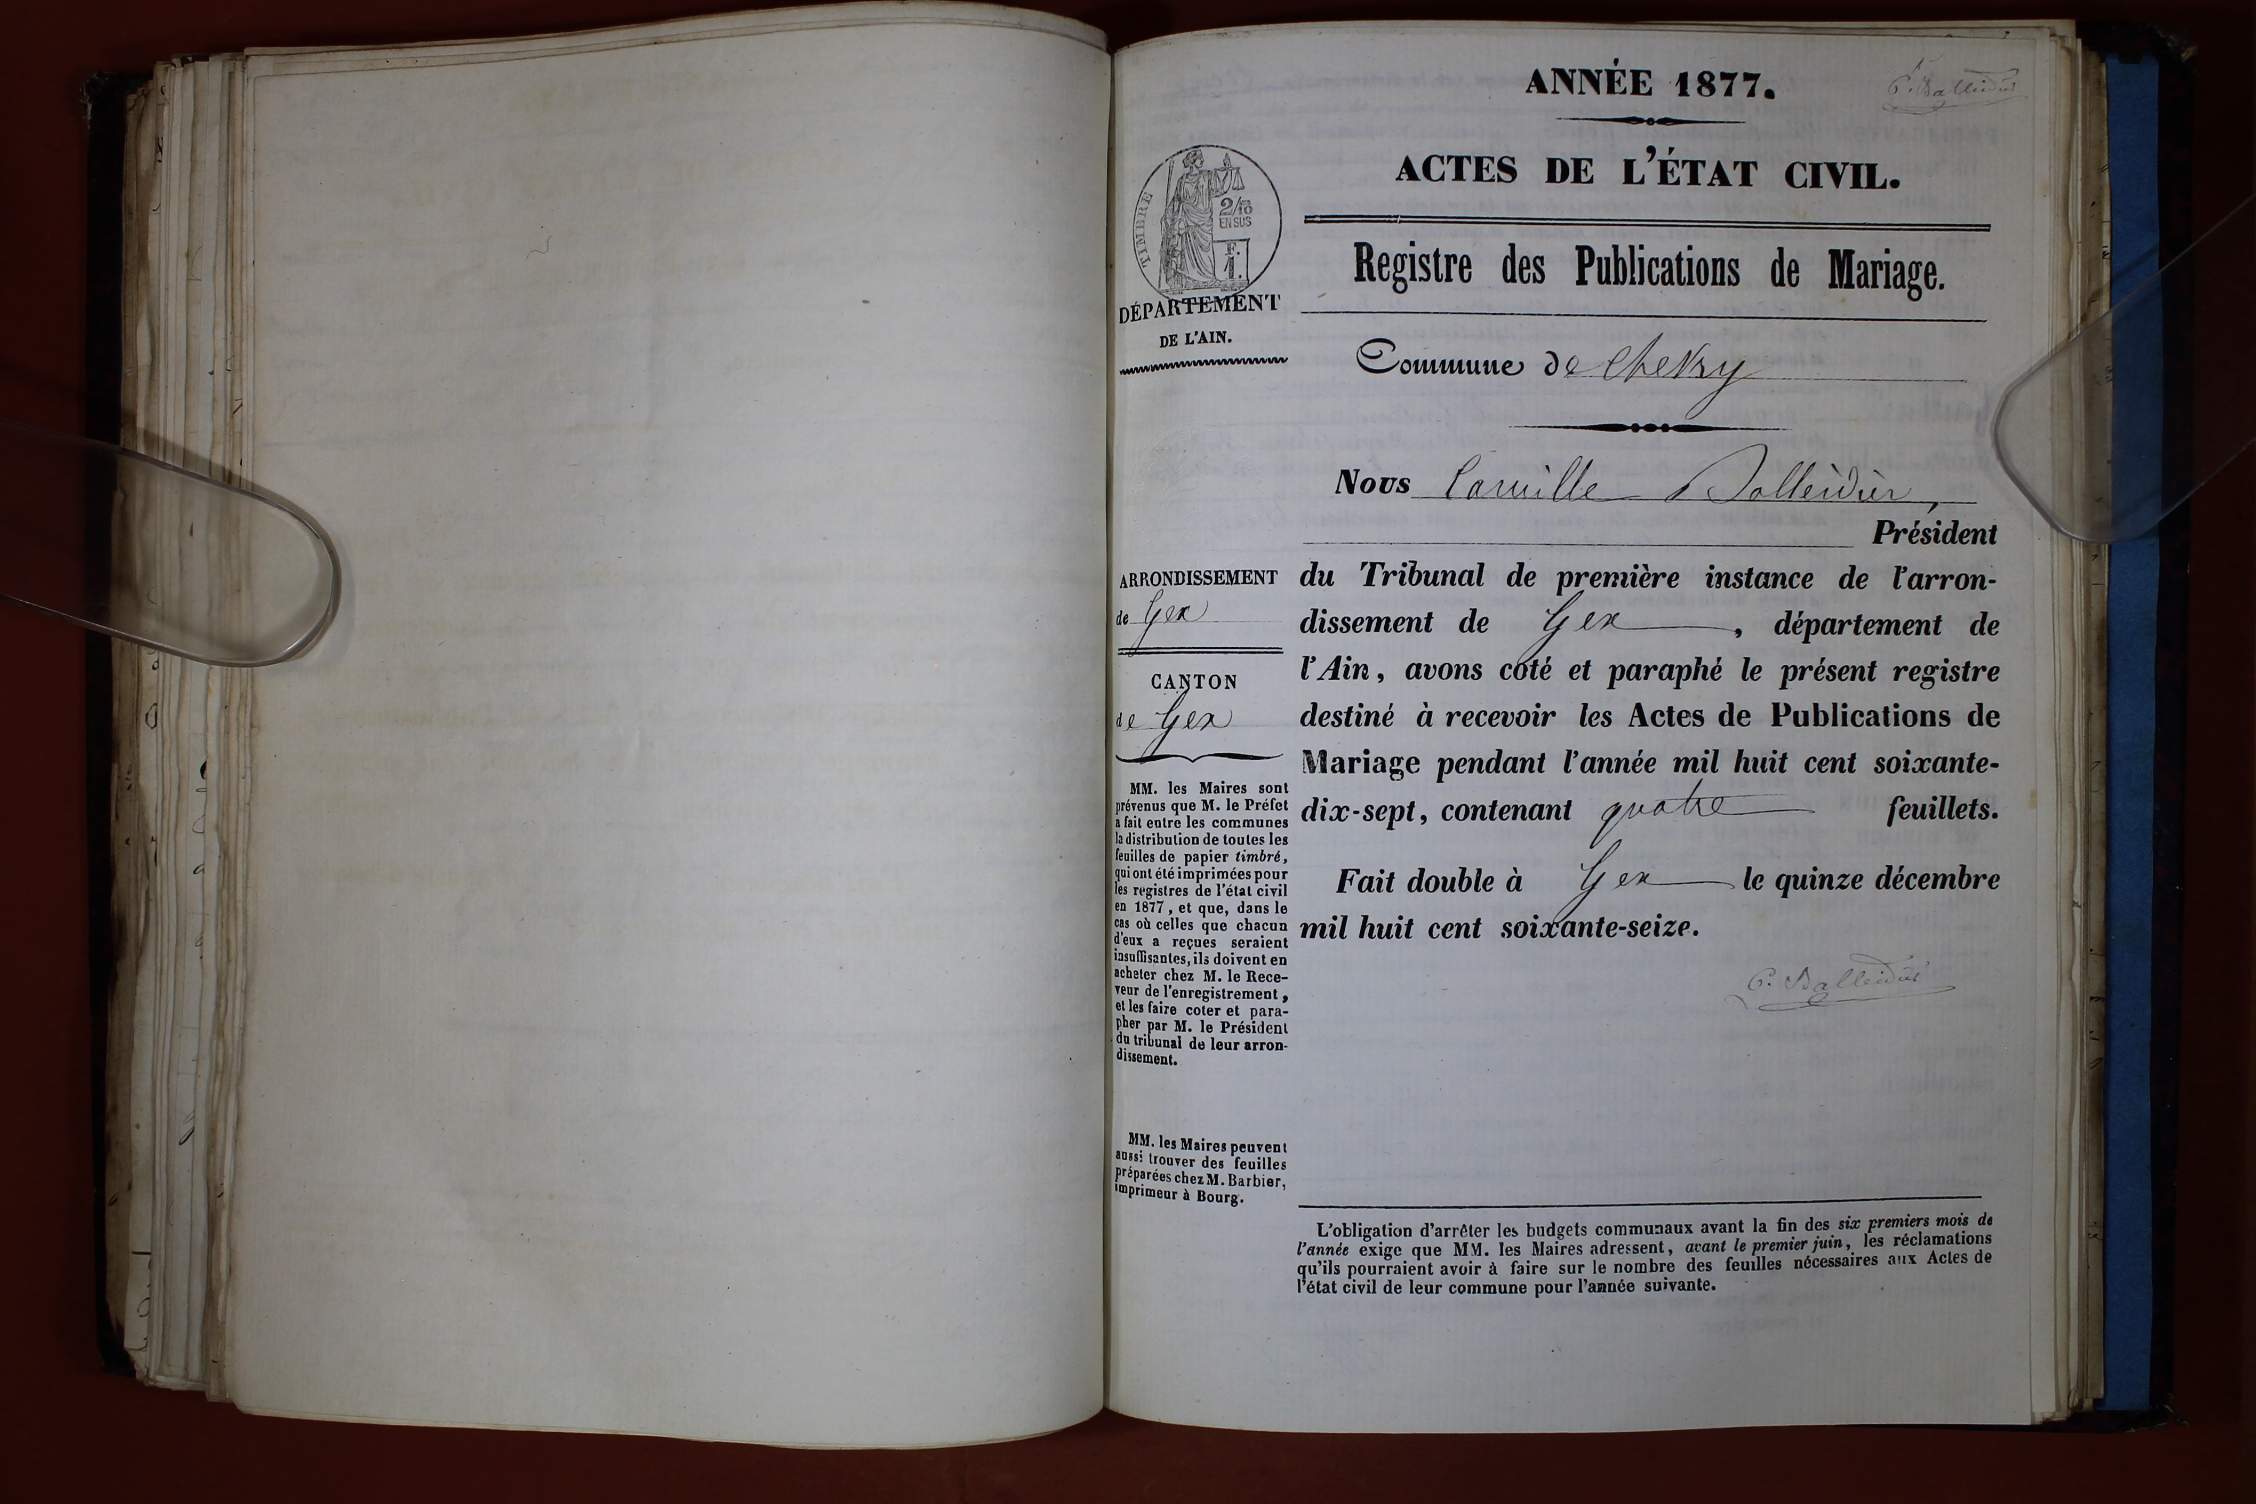 ANNÉE 1877.
C. Balleidier
ACTES DE L'ÉTAT CIVIL.
TIMBRE
2/10
EN SUS
F.
1.
Registre des Publications de Mariage.
DÉPARTEMENT
DE L'AIN.
Commune de Chevry
Nous Camille Balleidier,
Président
ARRONDISSEMENT
de Gex
CANTON
de Gex
du Tribunal de première instance de l'arron-
dissement de Gex, département de
l'Ain, avons coté et paraphé le présent registre
destiné à recevoir les Actes de Publications de
Mariage pendant l'année mil huit cent soixante-
dix-sept, contenant quatre feuillets.
Fait double à Gex le quinze décembre
mil huit cent soixante-seize.
C. Balleidier
MM. les Maires sont
prévenus que M. le Préfet
a fait entre les communes
la distribution de toutes les
feuilles de papier timbré,
qui ont été imprimées pour
les registres de l'état civil
en 1877, et que, dans le
cas où celles que chacun
d'eux a reçues seraient
insuffisantes, ils doivent en
acheter chez M. le Rece-
veur de l'enregistrement,
et les faire coter et para-
pher par M. le Président
du tribunal de leur arron-
dissement.
MM. les Maires peuvent
aussi trouver des feuilles
préparées chez M. Barbier,
imprimeur à Bourg.
L'obligation d'arrêter les budgets communaux avant la fin des six premiers mois de
l'année exige que MM. les Maires adressent, avant le premier juin, les réclamations
qu'ils pourraient avoir à faire sur le nombre des feuilles nécessaires aux Actes de
l'état civil de leur commune pour l'année suivante.